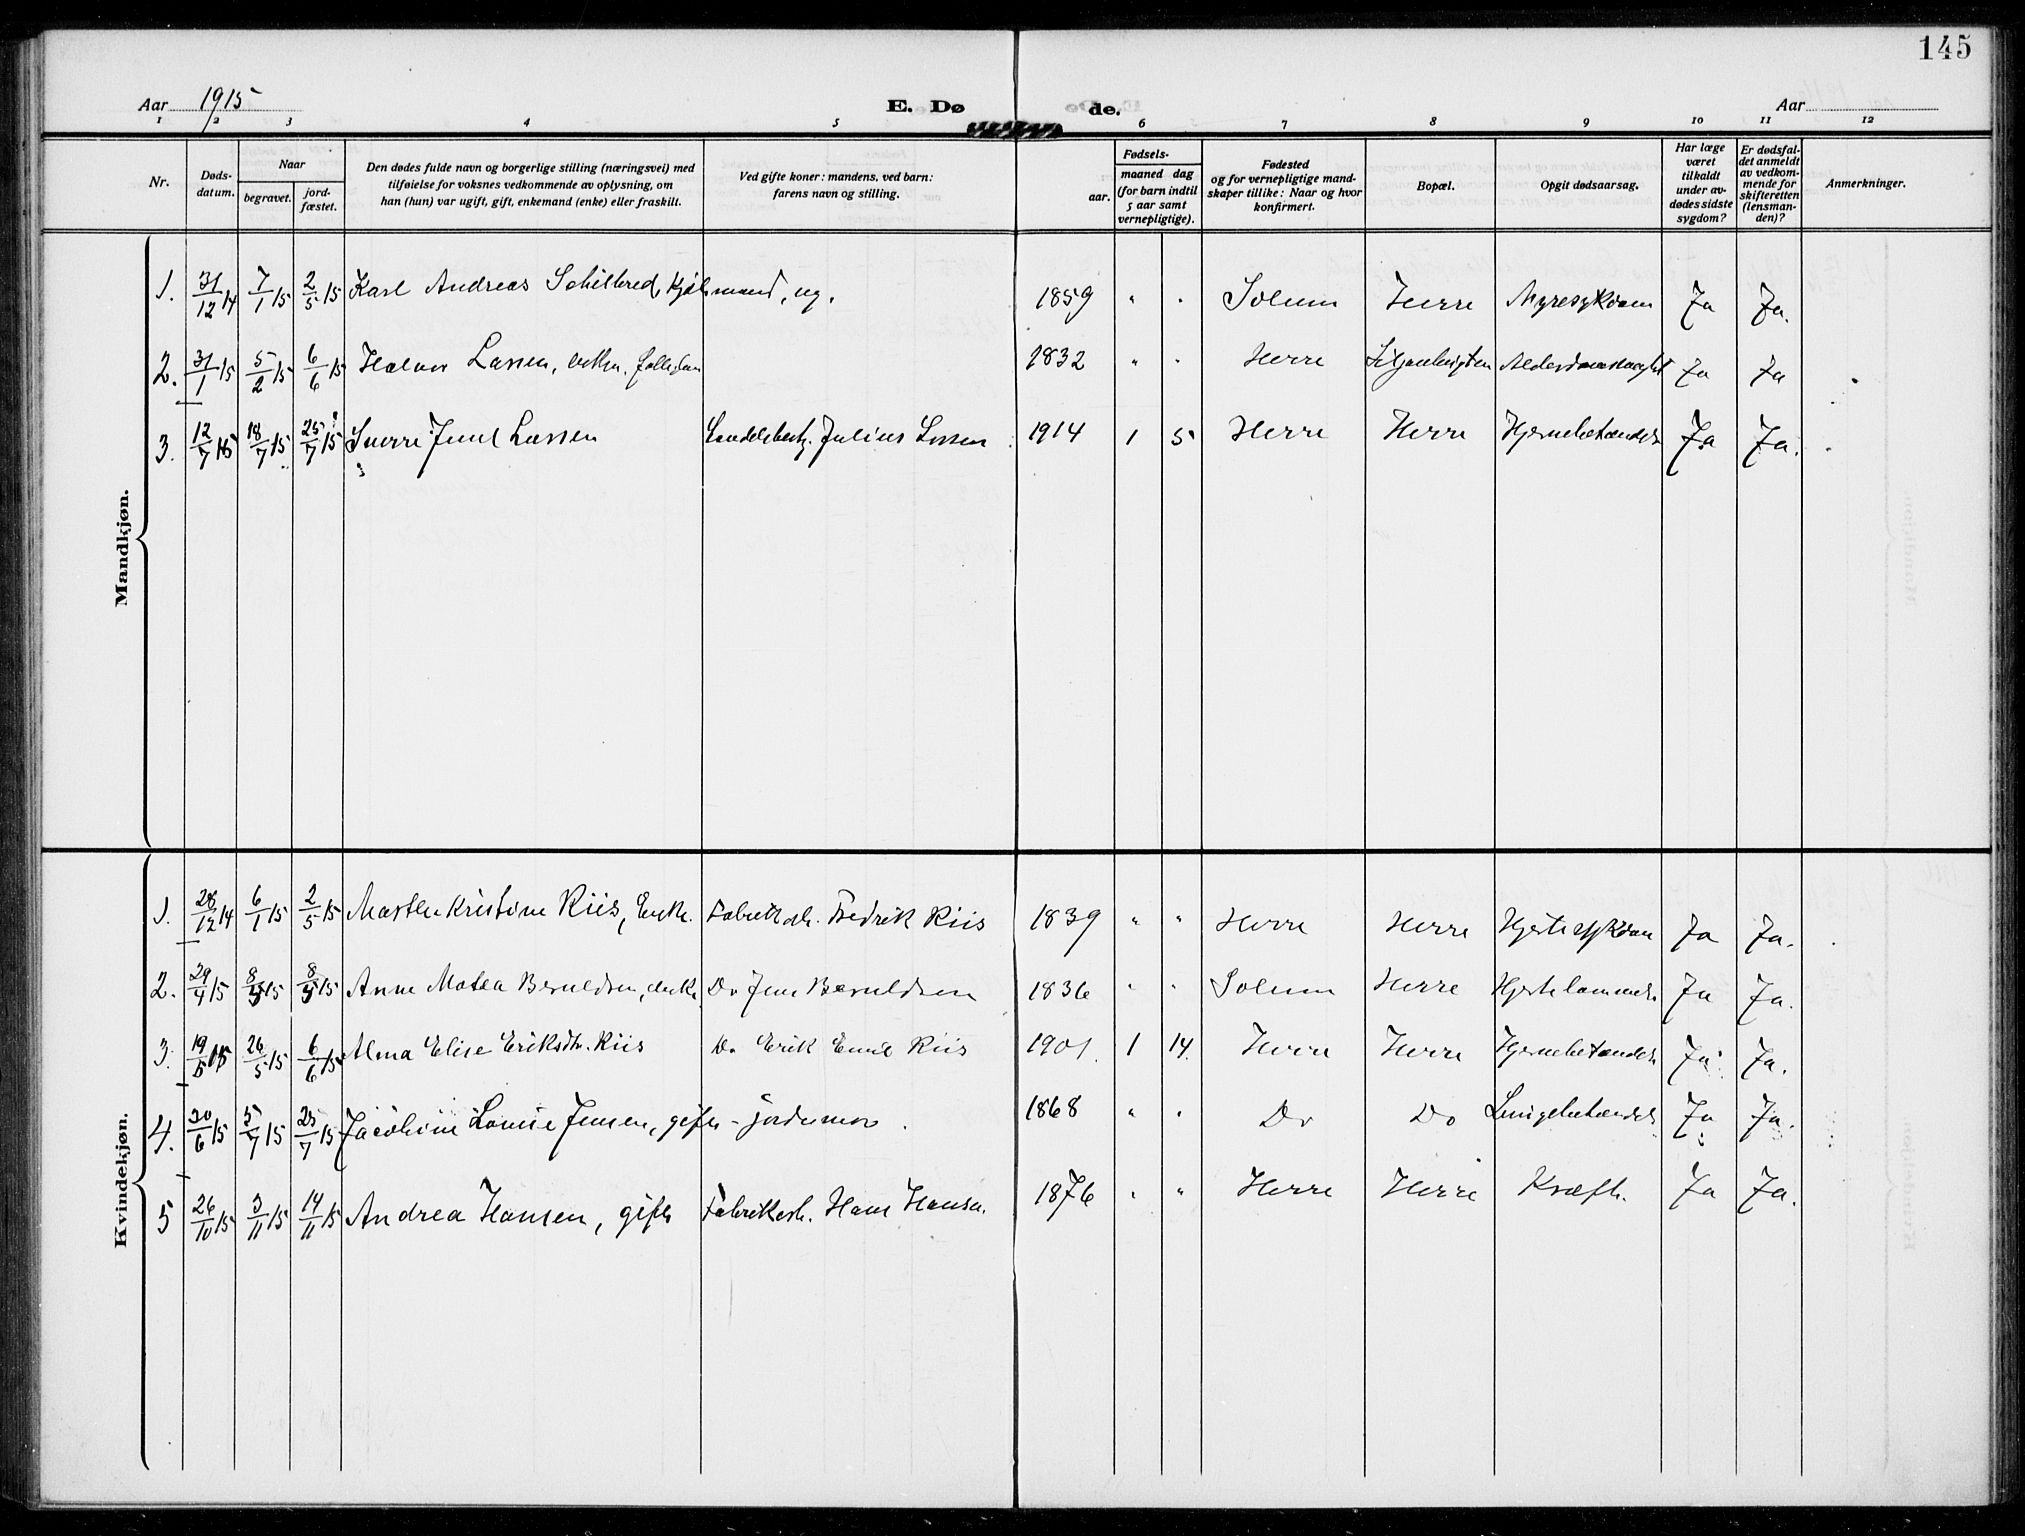 145
Aar 1915 E. Døde. Aar
1 2 3 4 5 6 7 8 9 10 11 12
Nr. Døds-datum. Naar begravet. jord-fæstet. Den dødes fulde navn og borgerlige stilling (næringsvei) med tilføielse for voksnes vedkommende av oplysning, om han (hun) var ugift, gift, enkemand (enke) eller fraskill. Ved gifte koner: mandens, ved barn: farens navn og stilling. Fødsels- aar. maaned dag (for barn indtil 5 aar samt vernepligtige). Fødested og for vernepligtige mand-skaper tillike: Naar og hvor konfirmert. Bopæl. Opgit dødsaarsag. Har læge været tilkaldt under av-dødes sidste sygdom? Er dødsfal-det anmeldt av vedkom-mende for skifteretten (lensman-den)? Anmerkninger.
Mandkjøn.
1. 31/12 14 7/1 15 2/5 15 Karl Andreas Schilbred, mand, ug. 1859 " " Solum Herre Nyresykdom Ja Ja.
2. 31/1 15 5/2 15 6/6 15 Halvor Larsen, 1832 " " Herre Ja Ja
3. 12/7 15 18/7 15 25/7 15 Snorre Juul Larsen Julius Larsen 1914 1 5 Herre Herre Hjernebetændels Ja Ja.
Kvindekjøn.
1. 28/12 14 6/1 15 2/5 15 Marthe Kristine Riis, Enke. Fredrik Riis 1839 " " Herre Herre Hjertesykdom Ja Ja.
2. 29/4 15 8/5 15 8/5 15 Anne Matea Beruldsen, enke Do Jens Beruldsen 1836 " " Solum Herre Hjertelammels Ja Ja.
3. 19/5 15 26/5 15 6/6 15 Alma Elise Eriksdtr. Riis Do Erik Emil Riis 1901 1 14. Herre Herre Hjernebetændels Ja Ja.
4. 30/6 15 5/7 15 25/7 15 Jacobine Louise Jensen, gift - jordmor. 1868 " " Do Do Lungebetændels Ja Ja.
5 26/10 15 3/11 15 14/11 15 Andrea Hansen, gift Fabrikarb. Hans Hansen. 1876 " " Herre Herre Kræft. Ja Ja.